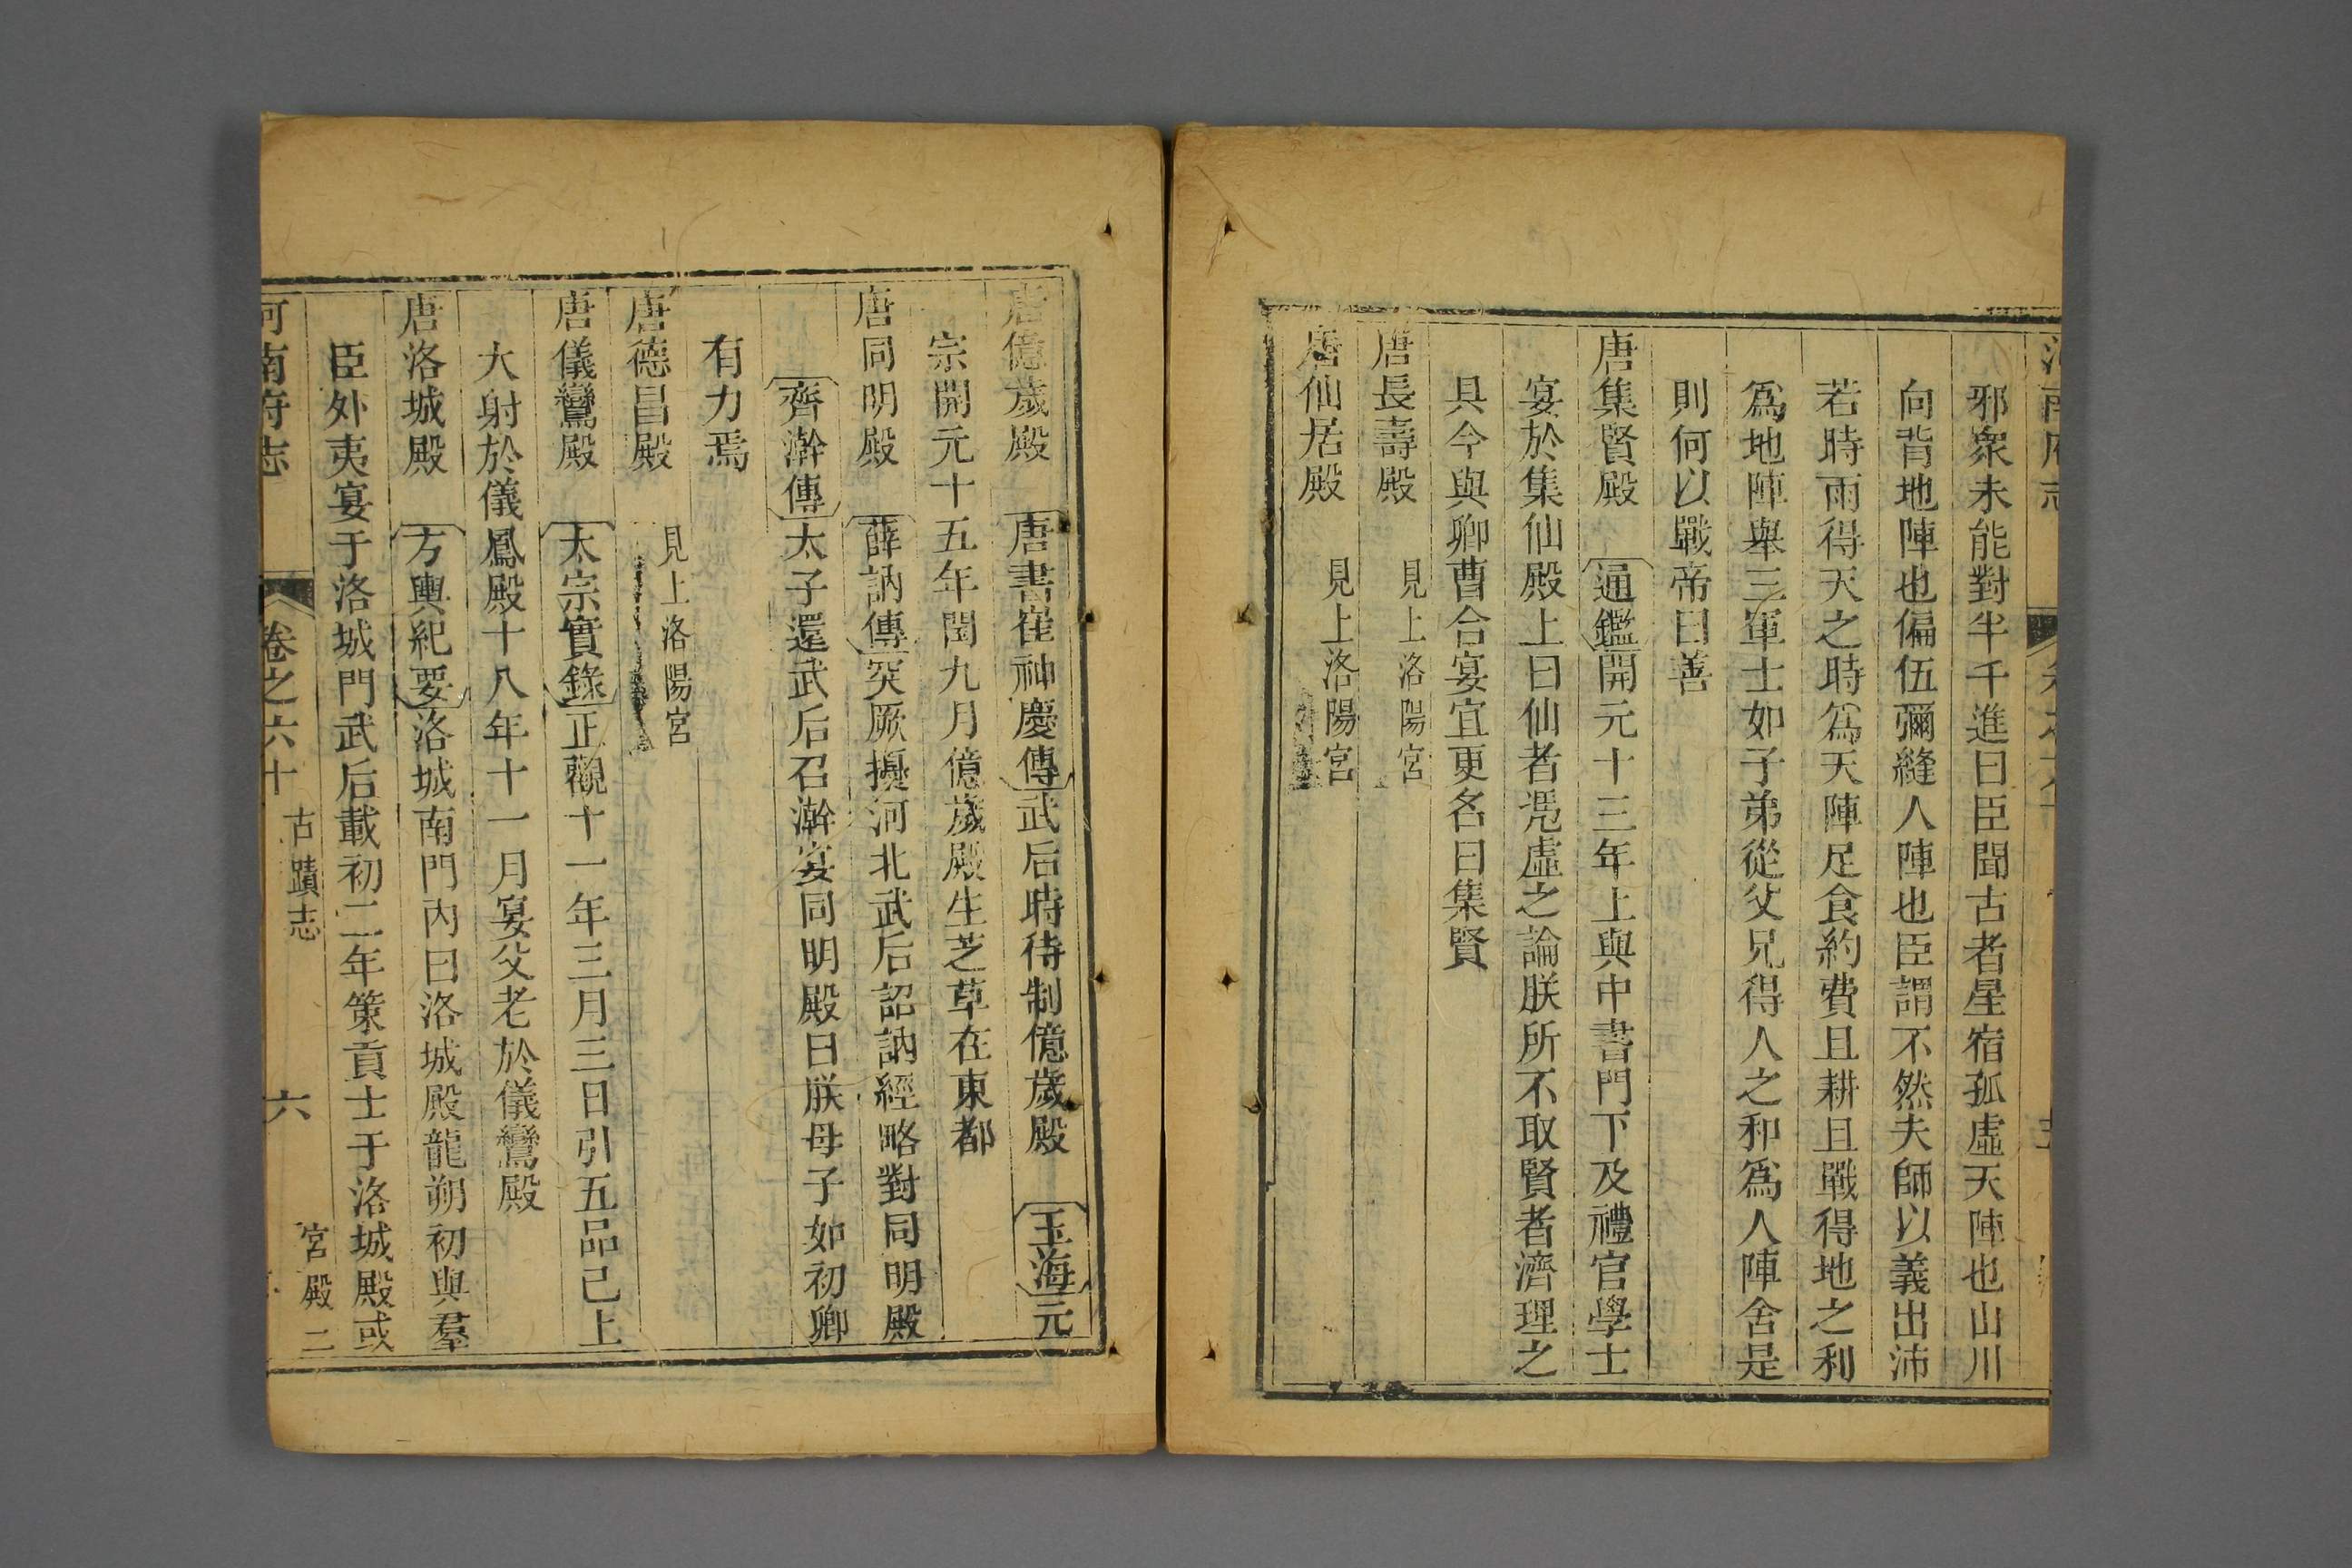 邪衆未能對半千進曰臣聞古者星宿孤虛天陣也山川
向背地陣也偏伍彌縫人陣也臣謂不然夫師以義出沛
若時雨得天之時爲天陣足食約費且耕且戰得地之利
爲地陣舉三軍士如子弟從父兄得人之和爲人陣舍是
則何以戰帝曰善
唐集賢殿 通鑑開元十三年上與中書門下及禮官學士
宴於集仙殿上曰仙者凴虛之論朕所不取賢者濟理之
具今與卿曹合宴宜更名曰集賢
唐長壽殿 見上洛陽宮
唐仙居殿 見上洛陽宮
唐億歲殿 唐書崔神慶傳武后時待制億歲殿 玉海元
宗開元十五年閏九月億歲殿生芝草在東都
唐同明殿 薛訥傳突厥擾河北武后詔訥經略對同明殿
齊澣傳太子還武后召澣宴同明殿曰朕母子如初卿
有力焉
唐德昌殿 見上洛陽宮
唐儀鸞殿 太宗實錄正觀十一年三月三日引五品已上
大射於儀鳳殿十八年十一月宴父老於儀鸞殿
唐洛城殿 方輿紀要洛城南門內曰洛城殿龍朔初與羣
臣外夷宴于洛城門武后載初二年策貢士于洛城殿或
河南府志 卷之六十 古蹟志 六 宮殿二